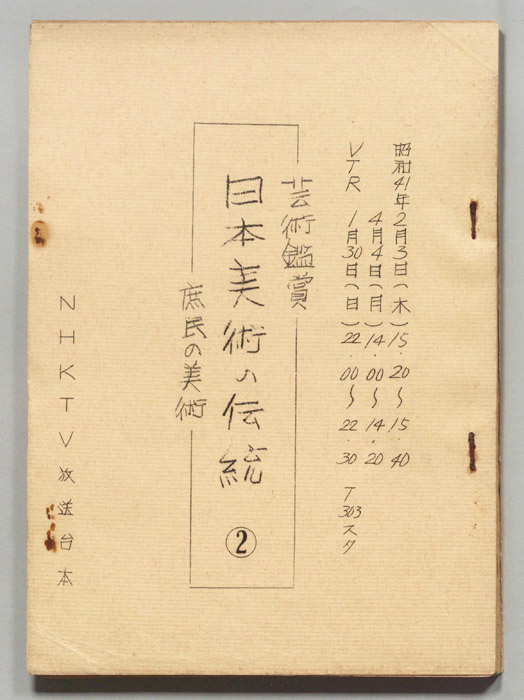 昭和41年2月3日(木)15.20〜15.40
4月4日(月)14.00〜14.20
VTR 1月30日(日)22.00〜22.30 T303スタ
芸術鑑賞
日本美術の伝統②
庶民の美術
NHKTV放送台本